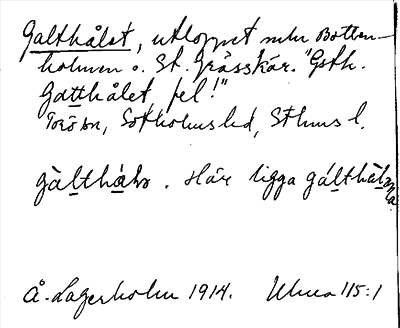 Galthålet, utloppet mln Botten-
holmen o. St. Grässkär. "Goth.
Gatthålet, fel!"
Torö sn, Sotholms hd, Sthms l.
gàlthòlə. Här ligga gálthåləna
Å. Lagerholm 1914. Ulma 115:1